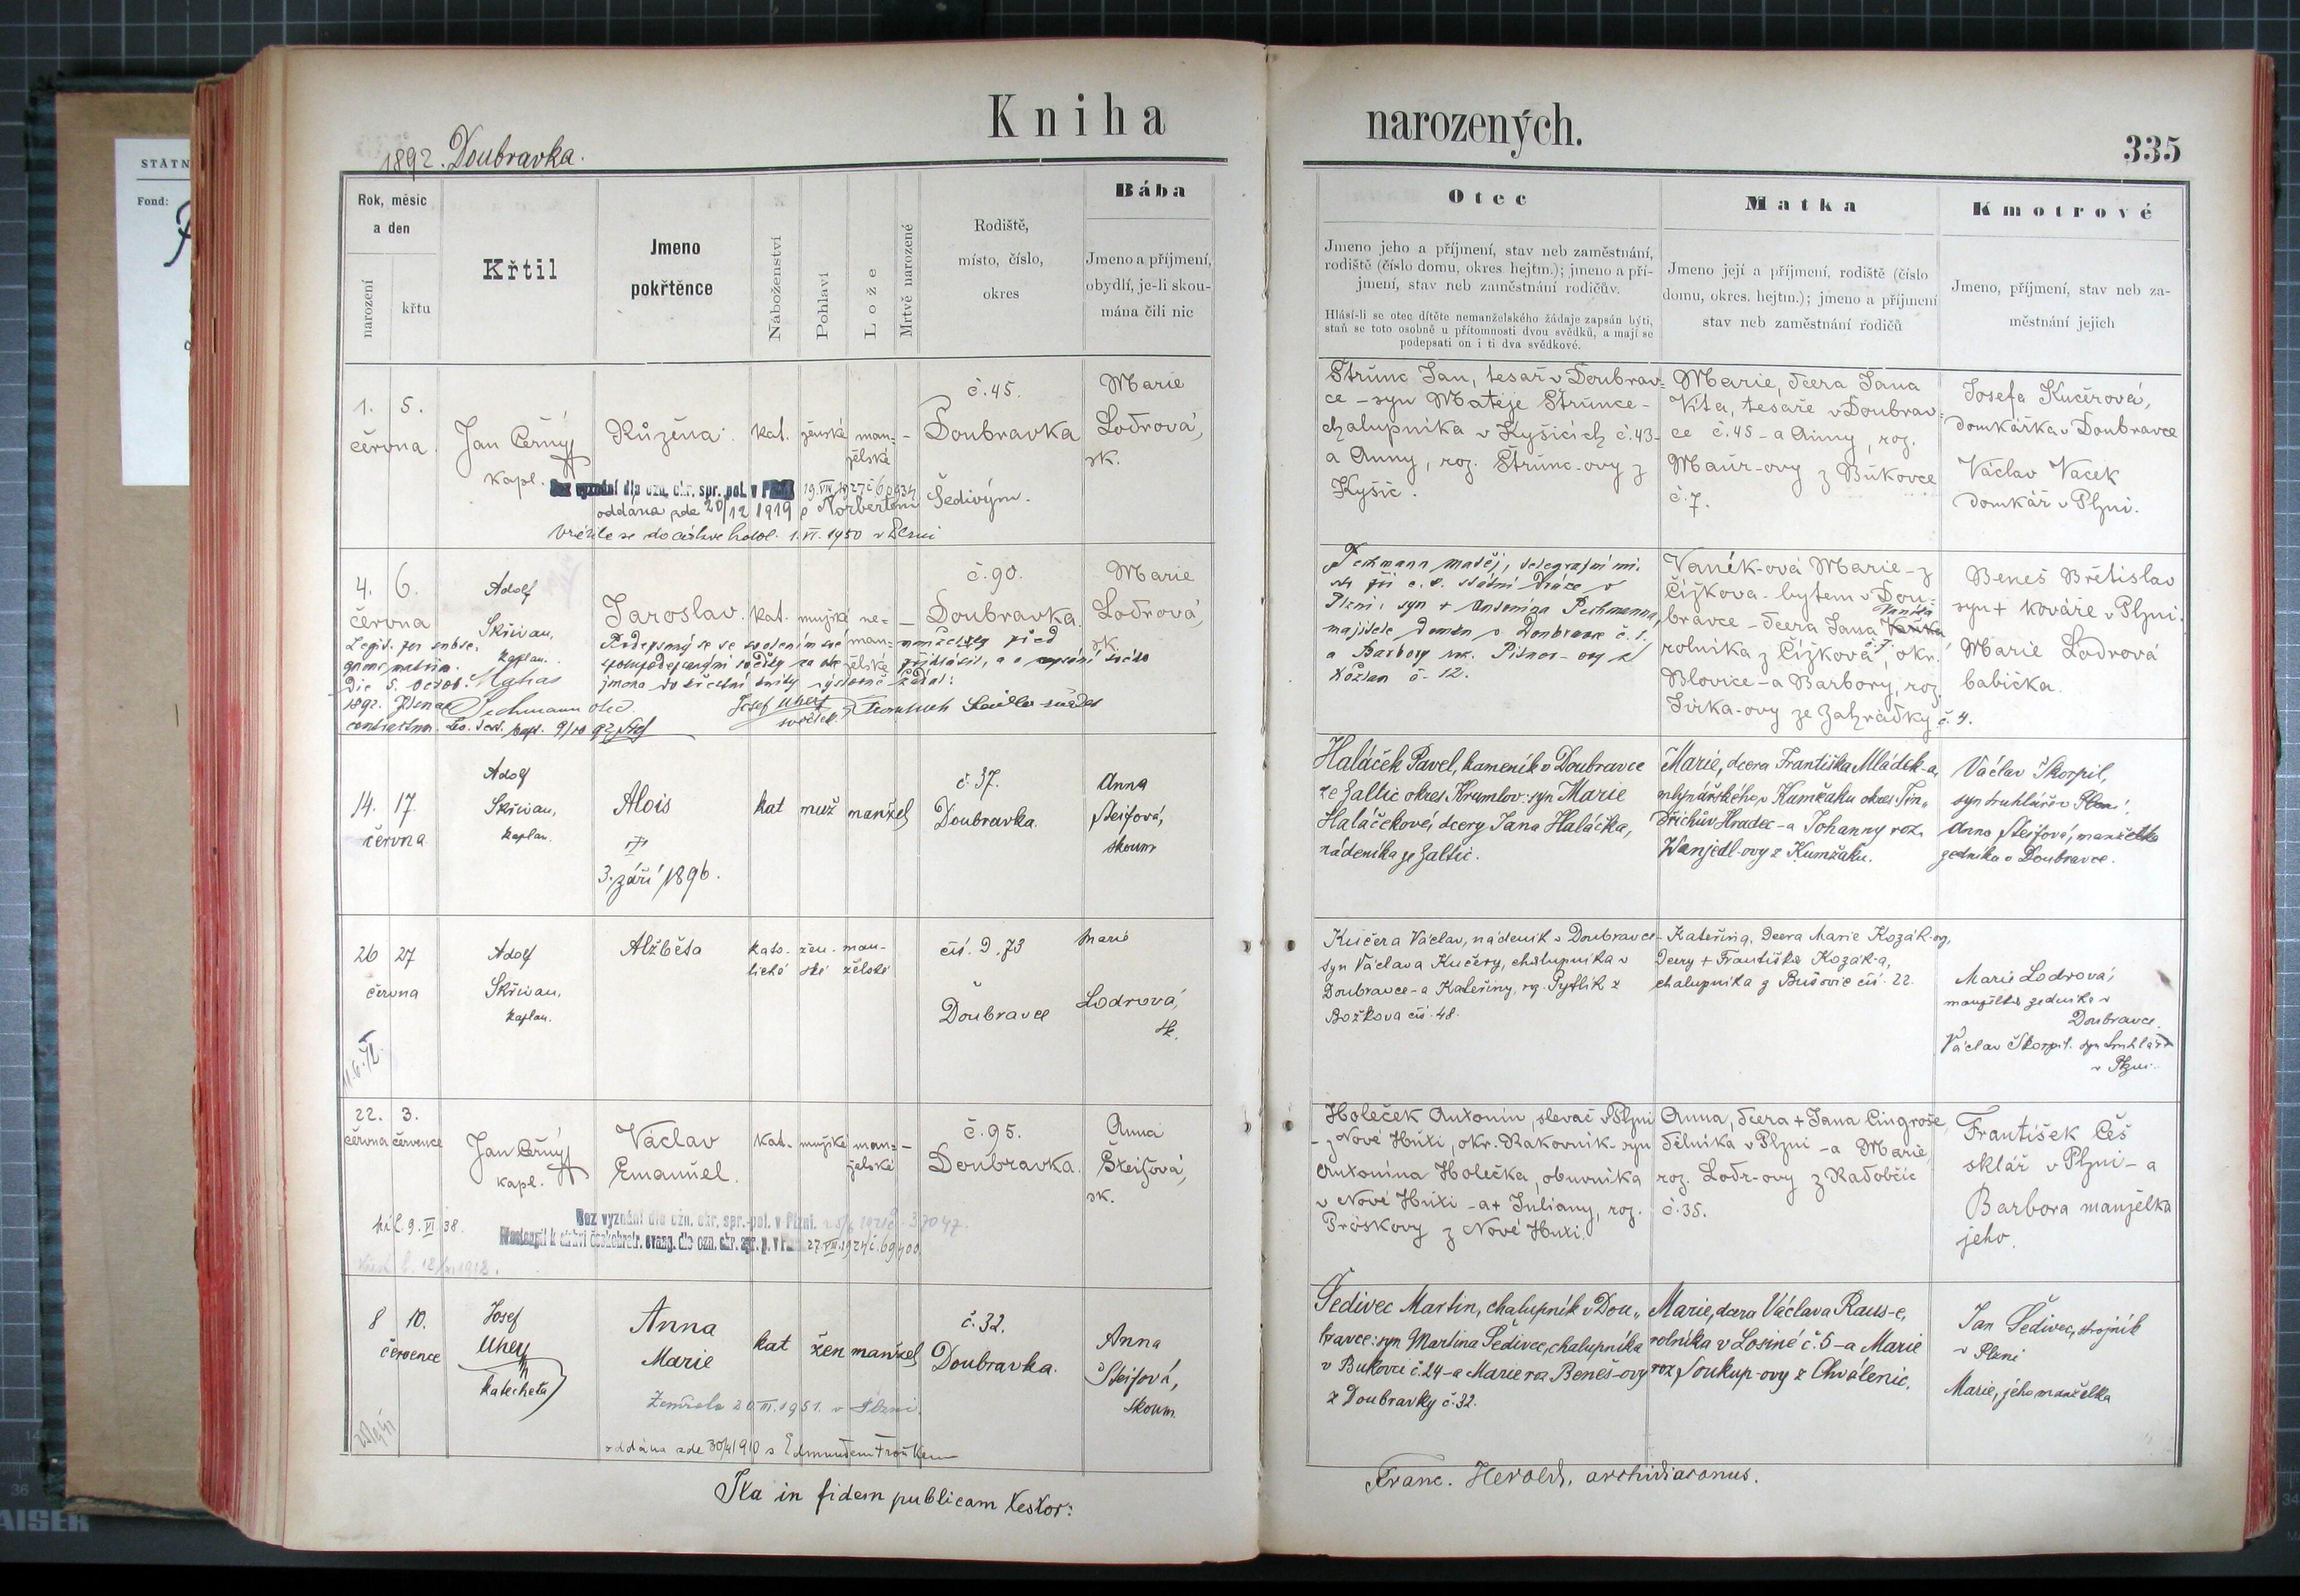 STÁTN
Fond:
Kniha narozených.
335
1892. Doubravka.
Rok, měsíc
a den
narození
křtu
Křtil
Jmeno
pokřtěnce
Náboženství
Pohlaví
Lože
Mrtvě narozené
Rodiště,
místo, číslo,
okres
Bába
Jmeno a příjmení,
obydlí, je-li skou-
mána čili nic
Otec
Jmeno jeho a příjmení, stav neb zaměstnání,
rodiště (číslo domu, okres hejtm.); jmeno a pří-
jmení, stav neb zaměstnání rodičův.
Hlásí-li se otec dítěte nemanželského žádaje zapsán býti,
staň se toto osobně u přítomnosti dvou svědků, a mají se
podepsati on i ti dva svědkové.
Matka
Jmeno její a příjmení, rodiště (číslo
domu, okres. hejtm.); jmeno a příjmení
stav neb zaměstnání rodičů
Kmotrové
Jmeno, příjmení, stav neb za-
městnání jejich
1. 5.
června.
Jan Černý
kapl.
Růžena.
kat. ženské man-
želské
–
č. 45.
Doubravka
Marie
Lodrová,
sk.
Bez vyznání dle ozn. okr. spr. pol. v 19.VIII.1927
oddána zde 20/12 1919 s Norbertem Šedivým.
1.VI.1950 v Plzni
Štrunc Jan, tesař v Doubrav-
ce – syn Matěje Štrunce –
chalupníka v Kyšicích č. 43 –
a Anny, roz. Štrunc-ovy z
Kyšic.
Marie, dcera Jana
Víta, tesaře v Doubrav-
ce č. 45 – a Anny, roz.
Maur-ovy z Bukovce
č. 7.
Josefa Kučerová,
domkářka v Doubravce
Václav Vacek
domkář v Plzni.
4. 6.
června
Adolf
Skřivan,
kaplan.
Jaroslav. kat. mužské ne-
man-
želské
–
č. 90.
Doubravka.
Marie
Lodrová,
sk.
Legit. per subse.
Die 5. Octob.
1892.
Pechmann otec
Josef Uher
svědek
svědek
Pechmann Matěj, telegrafní mi-
str při c. k. státní dráze v
Plzni, syn + Antonína Pechmanna,
majitele domu v Doubravce č. 1.
a Barbory roz. Pitner-ovy z
Kožlan č. 12.
Vaněk-ová Marie – z
Čížkova – bytem v Dou-
bravce – dcera Jana Vaňka
rolníka z Čížkova, okr.
Blovice – a Barbory, roz.
Jirka-ovy ze Zahrádky č. 4.
Beneš Břetislav
syn + kováře v Plzni.
Marie Lodrová
babička.
14. 17.
června
Adolf
Skřivan,
kaplan.
Alois
3. září 1896.
kat muž manžel
č. 37.
Doubravka.
Anna
Šteifová,
skoum
Haláček Pavel, kameník v Doubravce
ze Zaltic okres Krumlov: syn Marie
Haláčekové, dcery Jana Haláčka,
nádeníka ze Zaltic.
Marie, dcera Františka Mládek-a,
mlynářského v Kamžaku okres Jin-
dřichův Hradec – a Johanny roz.
Wanjedl-ovy z Kumžaku.
Václav Škorpil,
syn truhláře v Plzni.
Anna Šteifová, manželka
zedníka v Doubravce.
26 27
června
Adolf
Skřivan,
kaplan.
Alžběta
kato-
lické
žen-
ské
man-
želské
čís. d. 73
Doubravce
Marie
Lodrová,
sk.
Kučera Václav, nádeník v Doubravce –
syn Václava Kučery, chalupníka v
Doubravce – a Kateřiny, roz. Pytlík z
Božkova čís. 48.
Kateřina, dcera Marie Kozák-ovy,
dcery + Františka Kozák-a,
chalupníka z Bušovic čís. 22.
Marie Lodrová,
manželka zedníka v
Doubravce.
Václav Škorpil, syn truhláře
v Plzni.
22. 3.
června července
Jan Černý
kapl.
Václav
Emanuel.
kat. mužské man-
želské
–
č. 95.
Doubravka.
Anna
Šteifová,
sk.
9.VI.38.
Bez vyznání dle ozn. okr. spr.-pol. v Plzni. 37047.
Přestoupil k církvi českobratr. evang. dle ozn. okr. spr. p. v 27.VIII.1927 č. 69400
Holeček Antonín, slevač v Plzni
– z Nové Huti, okr. Rakovník – syn
Antonína Holečka, obuvníka
v Nové Huti – a + Juliany, roz.
Pröskovy z Nové Huti.
Anna, dcera + Jana Cingroše,
dělníka v Plzni – a Marie,
roz. Lodr-ovy z Radobčic
č. 35.
František Češ
sklář v Plzni – a
Barbora manželka
jeho.
8 10.
července
Josef
Uher
katecheta
Anna
Marie
kat žen manžel
č. 32.
Doubravka.
Anna
Šteifová,
skoum.
Zemřela 20.III.1951. v Plzni.
oddána zde 30/4 1910 s Edmundem Froňkem
Šedivec Martin, chalupník v Dou-
bravce: syn Martina Šedivce, chalupníka
v Bukovci č. 24 – a Marie roz Beneš-ovy
z Doubravky č. 32.
Marie, dcera Václava Raus-e,
rolníka v Losiné č. 5 – a Marie
roz Soukup-ovy z Chválenic.
Jan Šedivec, strojník
v Plzni
Marie, jeho manželka
Ita in fidem publicam testor:
Franc. Herold, archidiaconus.